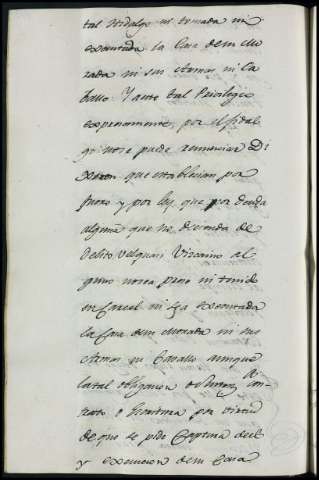 tal Hidalgo ni tomada ni
executada la Casa de su Mo
rada ni sus Armas ni Ca
ballo. Y a este tal Privilegio
expresamente, por el fidal
go no se puede renunciar Di
xeron que establecian por
fuero y por ley que por deuda
alguna que no decienda de
Delito vel quasi Vizcaino al
guno no sea preso ni tenido
en Carcel ni sea executada
la Casa de su Morada ni sus
Armas ni Cavallo aunque
la tal obligacion Con
trato o Escritura por virtud
de que se pide Captura de el
y execucion de su Casa